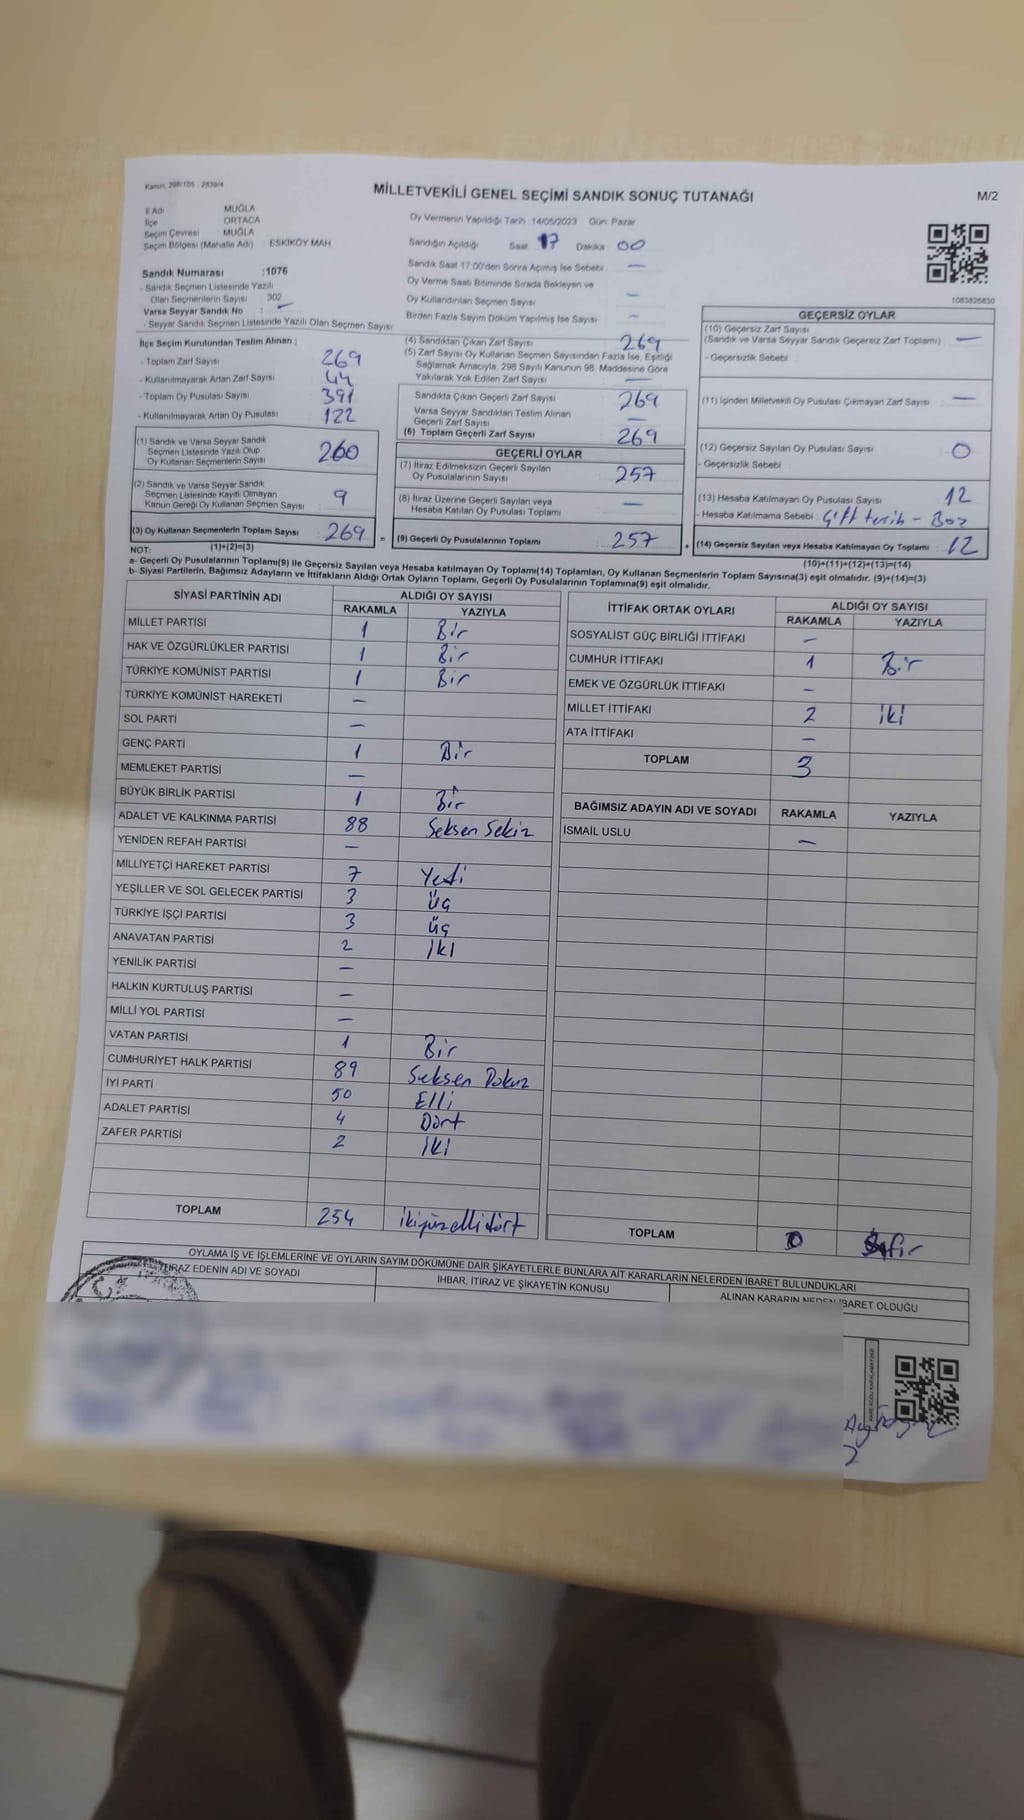 Kanun, 298/105 , 2839/4
MİLLETVEKİLİ GENEL SEÇİMİ SANDIK SONUÇ TUTANAĞI
M/2
İl Adı : MUĞLA
İlçe ORTACA
Seçim Çevresi MUĞLA
Seçim Bölgesi (Mahalle Adı) : ESKİKÖY MAH.
Sandık Numarası :1076
- Sandık Seçmen Listesinde Yazılı
Olan Seçmenlerin Sayısı : 302
Varsa Seyyar Sandık No : -
- Seyyar Sandık Seçmen Listesinde Yazılı Olan Seçmen Sayısı
Oy Vermenin Yapıldığı Tarih : 14/05/2023 Gün: Pazar
Sandığın Açıldığı Saat 17 Dakika 00
Sandık Saat 17:00'den Sonra Açılmış İse Sebebi : —
Oy Verme Saati Bitiminde Sırada Bekleyen ve
Oy Kullandırılan Seçmen Sayısı —
Birden Fazla Sayım Döküm Yapılmış İse Sayısı : —
1083826830
İlçe Seçim Kurulundan Teslim Alınan :
- Toplam Zarf Sayısı 269
- Kullanılmayarak Artan Zarf Sayısı 44
- Toplam Oy Pusulası Sayısı 391
- Kullanılmayarak Artan Oy Pusulası 122
(1) Sandık ve Varsa Seyyar Sandık
Seçmen Listesinde Yazılı Olup
Oy Kullanan Seçmenlerin Sayısı 260
(2) Sandık ve Varsa Seyyar Sandık
Seçmen Listesinde Kayıtlı Olmayan
Kanun Gereği Oy Kullanan Seçmen Sayısı 9
(3) Oy Kullanan Seçmenlerin Toplam Sayısı : 269
(1)+(2)=(3)
(4) Sandıktan Çıkan Zarf Sayısı : 269
(5) Zarf Sayısı Oy Kullanan Seçmen Sayısından Fazla İse, Eşitliği
Sağlamak Amacıyla, 298 Sayılı Kanunun 98. Maddesine Göre
Yakılarak Yok Edilen Zarf Sayısı —
Sandıkta Çıkan Geçerli Zarf Sayısı : 269
Varsa Seyyar Sandıktan Teslim Alınan
Geçerli Zarf Sayısı —
(6) Toplam Geçerli Zarf Sayısı : 269
GEÇERLİ OYLAR
(7) İtiraz Edilmeksizin Geçerli Sayılan
Oy Pusulalarının Sayısı 257
(8) İtiraz Üzerine Geçerli Sayılan veya
Hesaba Katılan Oy Pusulası Toplamı —
= (9) Geçerli Oy Pusulalarının Toplamı 257 +
GEÇERSİZ OYLAR
(10) Geçersiz Zarf Sayısı
(Sandık ve Varsa Seyyar Sandık Geçersiz Zarf Toplamı) : —
- Geçersizlik Sebebi :
(11) İçinden Milletvekili Oy Pusulası Çıkmayan Zarf Sayısı —
(12) Geçersiz Sayılan Oy Pusulası Sayısı : 0
- Geçersizlik Sebebi :
(13) Hesaba Katılmayan Oy Pusulası Sayısı : 12
- Hesaba Katılmama Sebebi : Çift tercih - Boş
(14) Geçersiz Sayılan veya Hesaba Katılmayan Oy Toplamı : 12
(10)+(11)+(12)+(13)=(14)
NOT:
a- Geçerli Oy Pusulaları Toplamı(9) ile Geçersiz Sayılan veya Hesaba katılmayan Oy Toplamı(14) Toplamları, Oy Kullanan Seçmenlerin Toplam Sayısına(3) eşit olmalıdır. (9)+(14)=(3)
b- Siyasi Partilerin, Bağımsız Adayların ve İttifakların Aldığı Ortak Oyların Toplamı, Geçerli Oy Pusulalarının Toplamına(9) eşit olmalıdır.
SİYASİ PARTİNİN ADI ALDIĞI OY SAYISI
RAKAMLA YAZIYLA
MİLLET PARTİSİ 1 Bir
HAK VE ÖZGÜRLÜKLER PARTİSİ 1 Bir
TÜRKİYE KOMÜNİST PARTİSİ 1 Bir
TÜRKİYE KOMÜNİST HAREKETİ —
SOL PARTİ —
GENÇ PARTİ 1 Bir
MEMLEKET PARTİSİ —
BÜYÜK BİRLİK PARTİSİ 1 Bir
ADALET VE KALKINMA PARTİSİ 88 Seksen Sekiz
YENİDEN REFAH PARTİSİ —
MİLLİYETÇİ HAREKET PARTİSİ 7 Yedi
YEŞİLLER VE SOL GELECEK PARTİSİ 3 Üç
TÜRKİYE İŞÇİ PARTİSİ 3 Üç
ANAVATAN PARTİSİ 2 İki
YENİLİK PARTİSİ —
HALKIN KURTULUŞ PARTİSİ —
MİLLİ YOL PARTİSİ —
VATAN PARTİSİ 1 Bir
CUMHURİYET HALK PARTİSİ 89 Seksen Dokuz
İYİ PARTİ 50 Elli
ADALET PARTİSİ 4 Dört
ZAFER PARTİSİ 2 İki
TOPLAM 254 ikiyüzellidört
İTTİFAK ORTAK OYLARI ALDIĞI OY SAYISI
RAKAMLA YAZIYLA
SOSYALİST GÜÇ BİRLİĞİ İTTİFAKI —
CUMHUR İTTİFAKI 1 Bir
EMEK VE ÖZGÜRLÜK İTTİFAKI —
MİLLET İTTİFAKI 2 iki
ATA İTTİFAKI —
TOPLAM 3
BAĞIMSIZ ADAYIN ADI VE SOYADI RAKAMLA YAZIYLA
İSMAİL USLU —
TOPLAM 0 Sıfır
OYLAMA İŞ VE İŞLEMLERİNE VE OYLARIN SAYIM DÖKÜMÜNE DAİR ŞİKAYETLERLE BUNLARA AİT KARARLARIN NELERDEN İBARET BULUNDUKLARI
İTİRAZ EDENİN ADI VE SOYADI
İHBAR, İTİRAZ VE ŞİKAYETİN KONUSU
ALINAN KARARIN NEDEN İBARET OLDUĞU